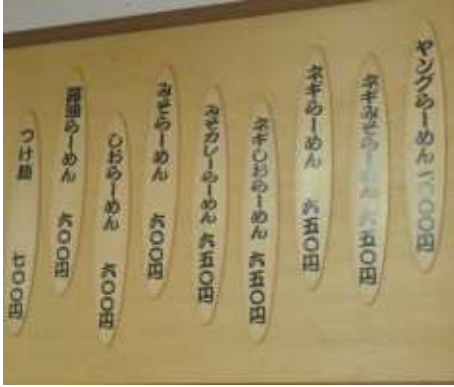 ヤングらーめん 一〇〇〇円
ネギみそらーめん 六五〇円
ネギらーめん 六五〇円
ネギしおらーめん 六五〇円
みそカレーらーめん 六五〇円
みそらーめん 六〇〇円
しおらーめん 六〇〇円
醤油らーめん 六〇〇円
つけ麺 七〇〇円